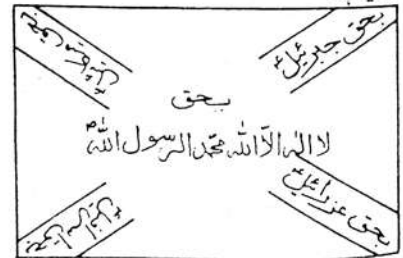 بحق جبرئیلؑ
بحق میکائیلؑ
بحق
لا اله الا الله محمد الرسول اللهؐ
بحق عزرائیلؑ
بحق اسرافیلؑ